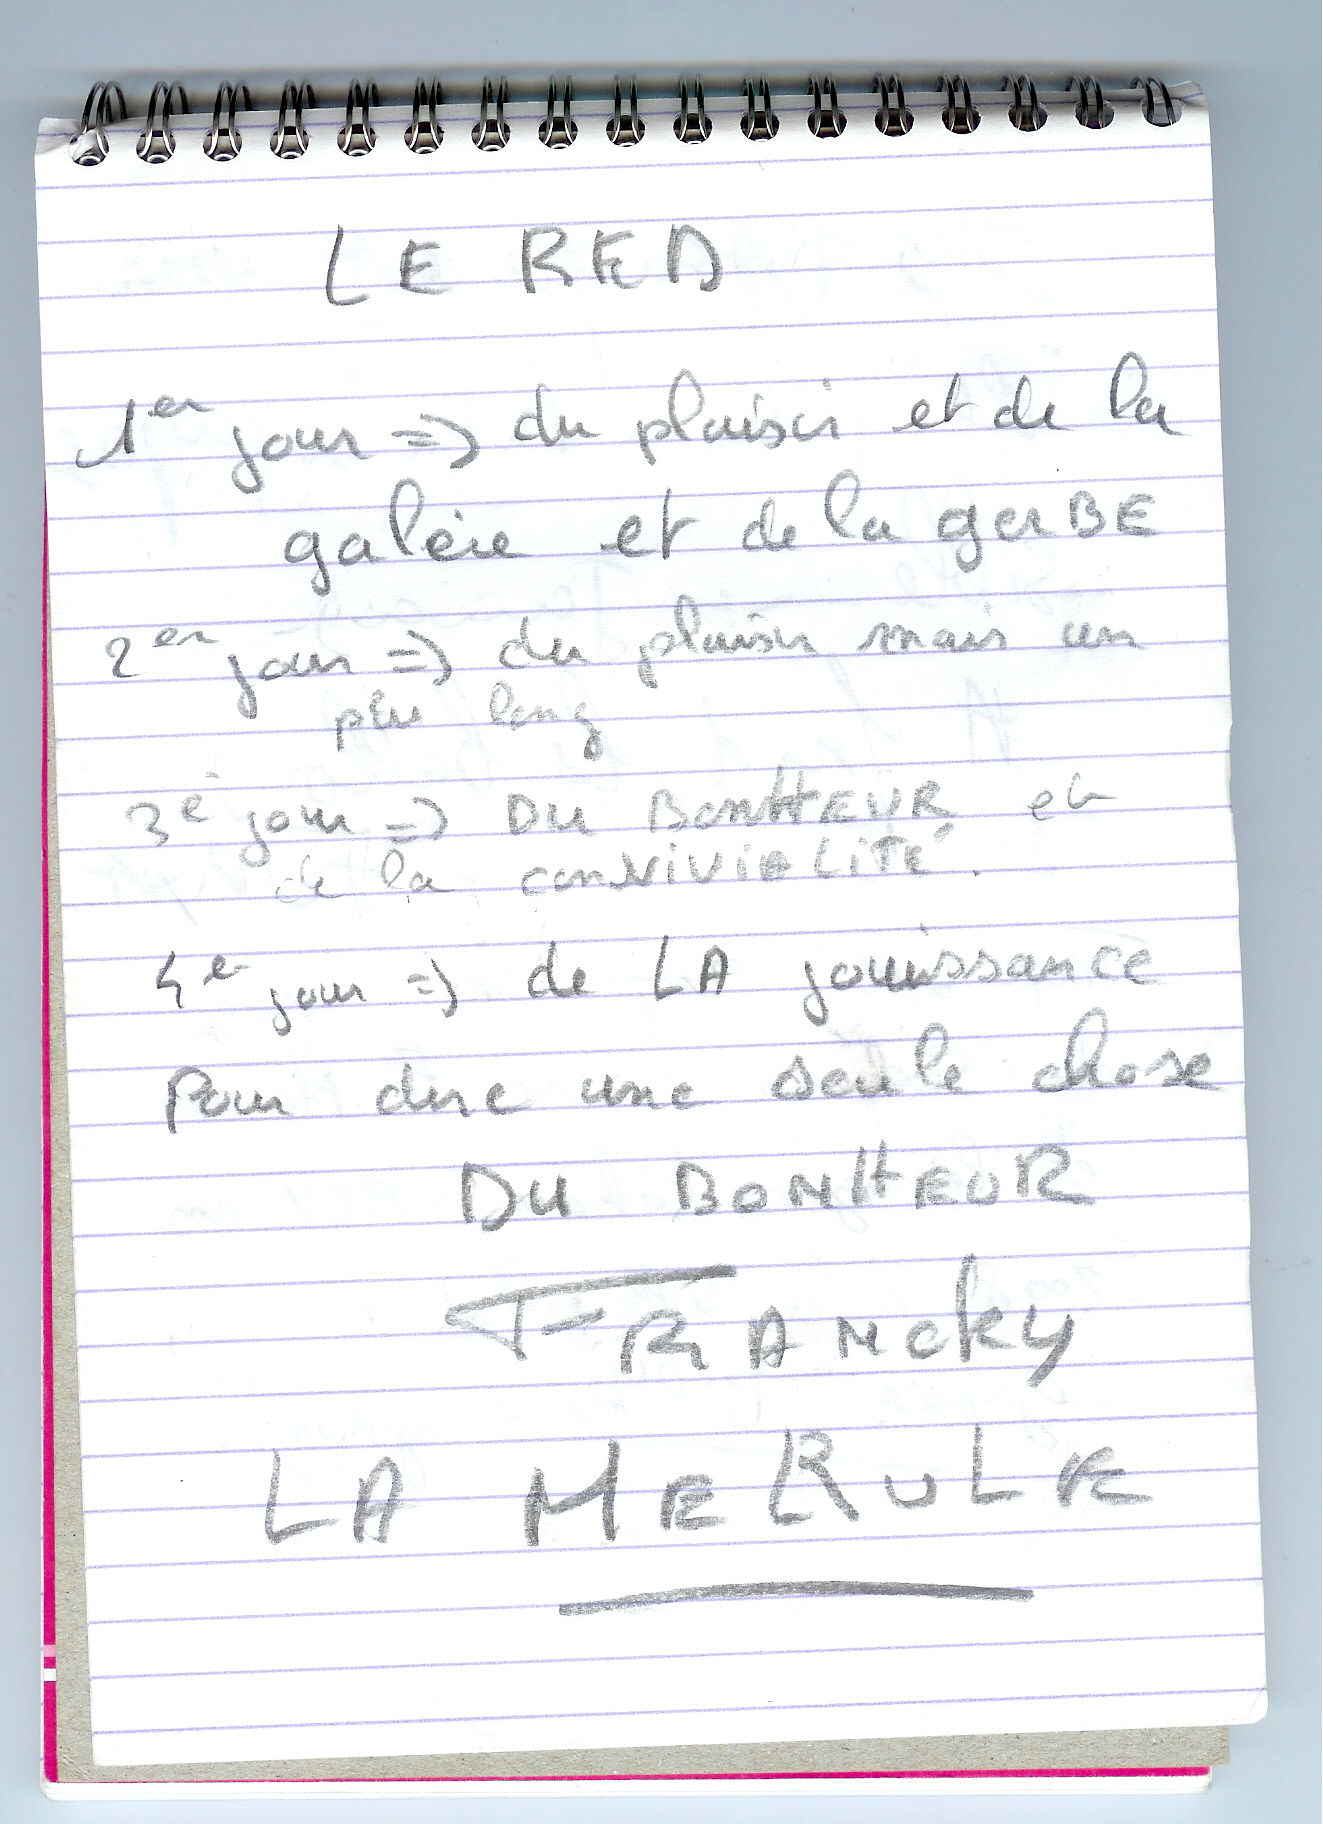 LE RED
1er jour => du plaisir et de la
galère et de la gerBE
2er jour => du plaisir mais un
peu long
3è jour => DU BONHEUR et
de la conViViALiTé.
4e jour => de LA jouissance
Pour dire une seule chose
DU BONHEUR
FRANCKY
LA MERULE